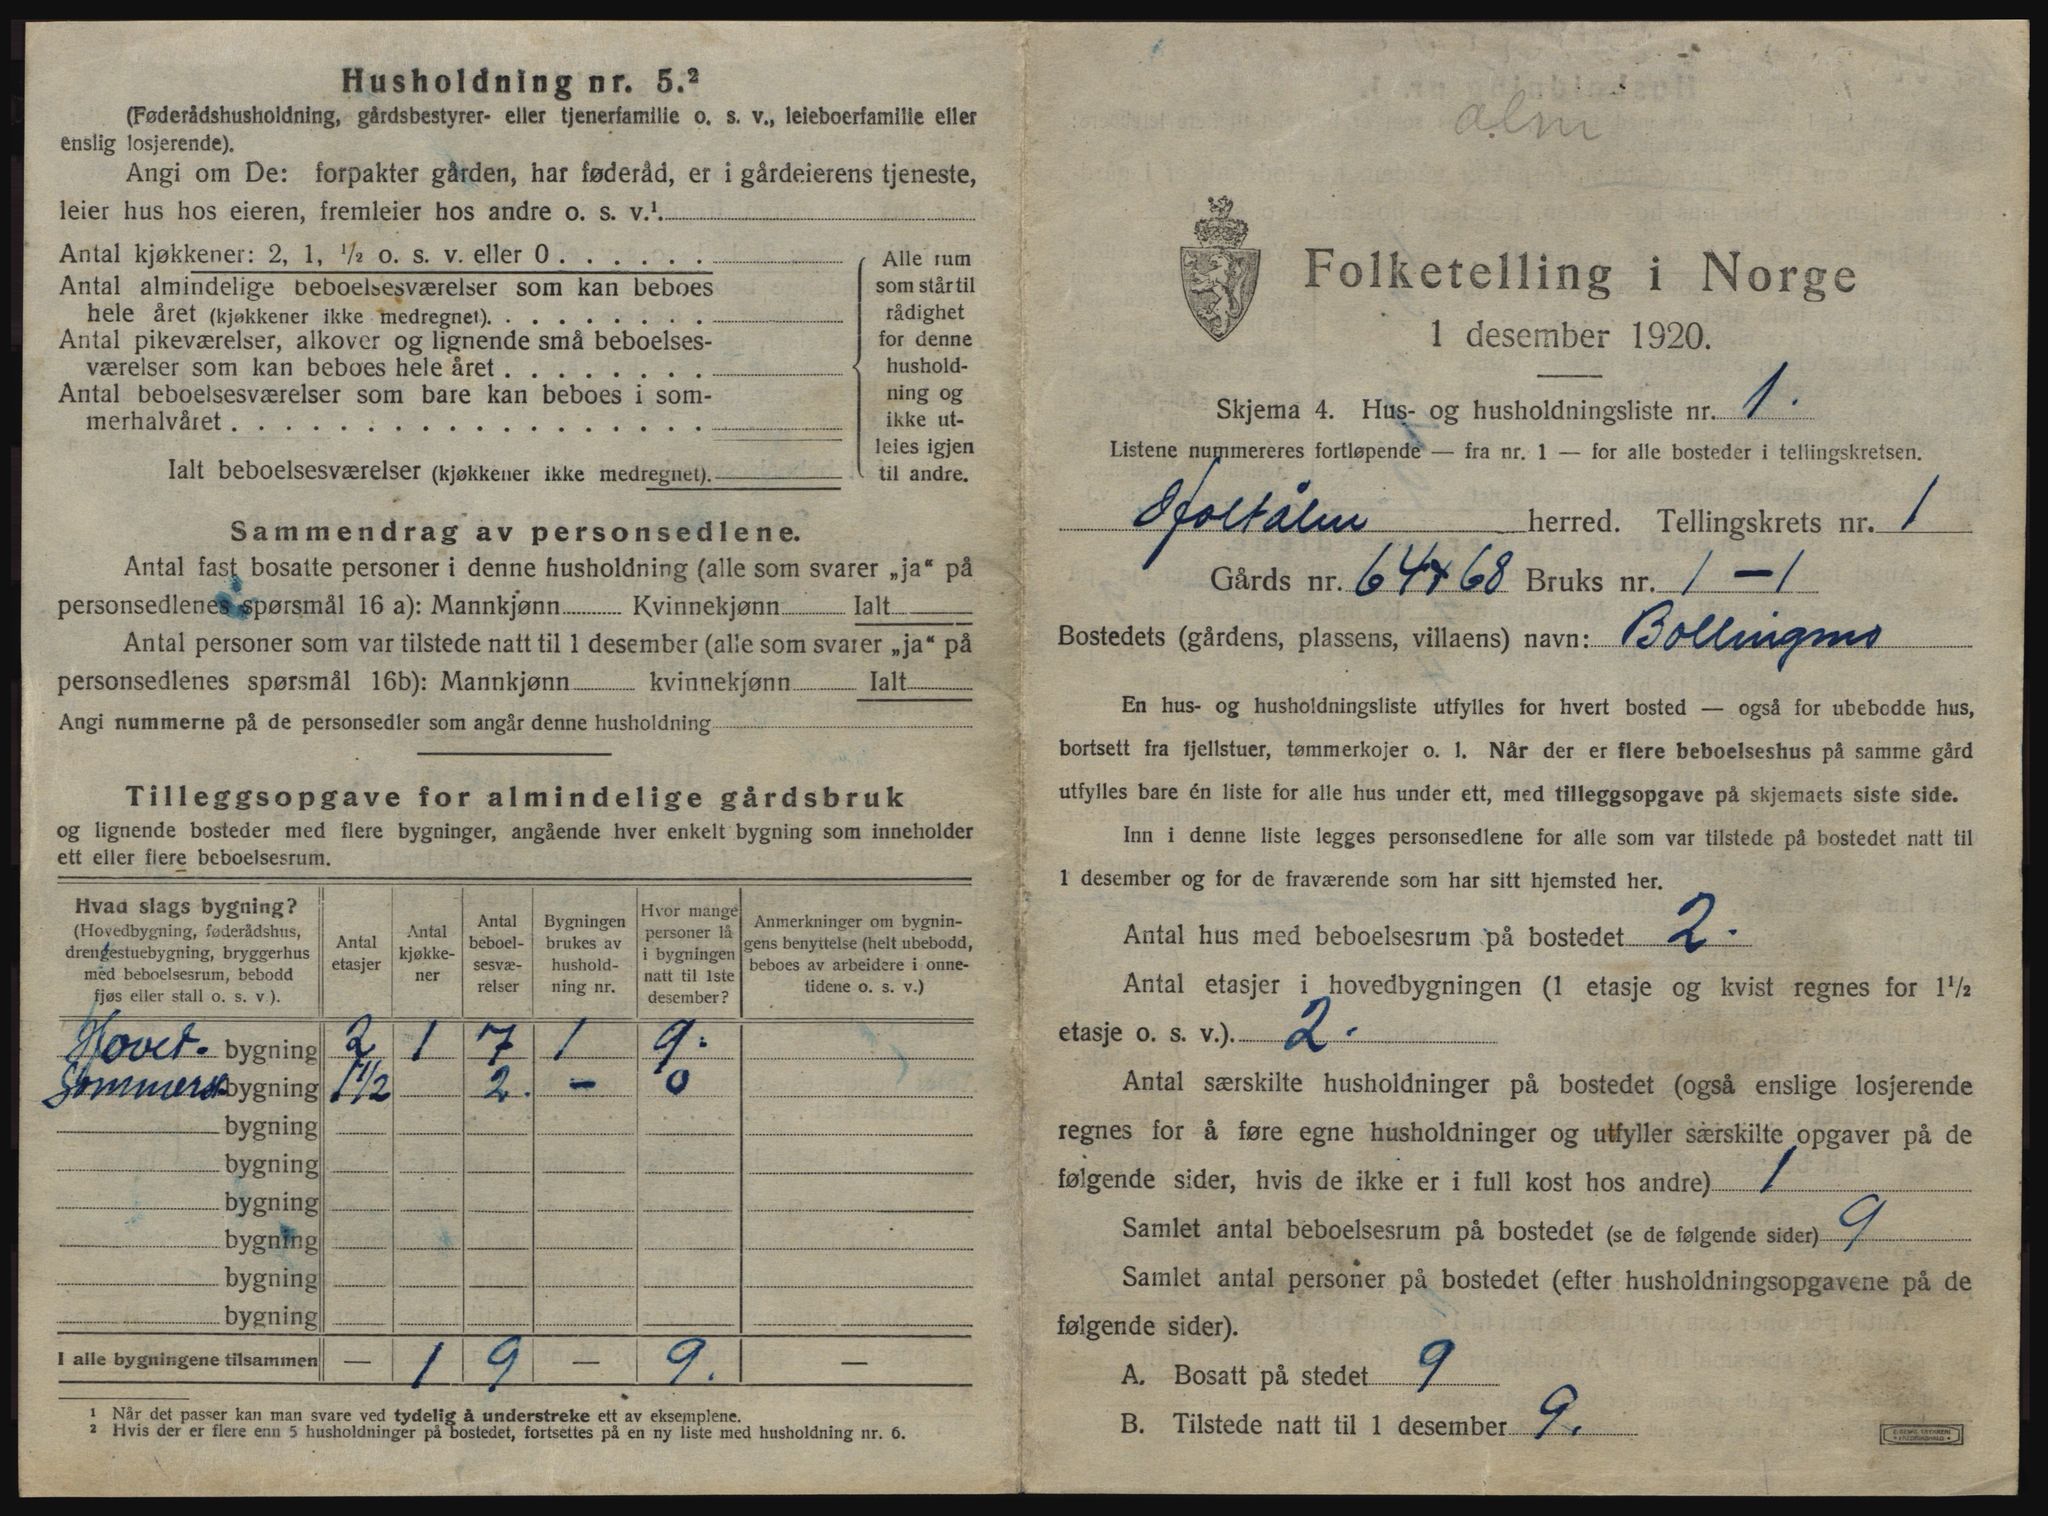 Husholdning nr. 5.²
(Føderådshusholdning, gårdsbestyrer- eller tjenerfamilie o. s. v., leieboerfamilie eller
enslig losjerende).
Angi om De: forpakter gården, har føderåd, er i gårdeierens tjeneste,
leier hus hos eieren, fremleier hos andre o. s. v.¹
Antal kjøkkener: 2, 1, ½ o. s. v. eller 0
Antal almindelige beboelsesværelser som kan beboes
hele året (kjøkkener ikke medregnet).
Antal pikeværelser, alkover og lignende små beboelses-
værelser som kan beboes hele året
Antal beboelsesværelser som bare kan beboes i som-
merhalvåret
Ialt beboelsesværelser (kjøkkener ikke medregnet).
Alle rum
som står til
rådighet
for denne
hushold-
ning og
ikke ut-
leies igjen
til andre.
Sammendrag av personsedlene.
Antal fast bosatte personer i denne husholdning (alle som svarer „ja“ på
personsedlenes spørsmål 16 a): Mannkjønn Kvinnekjønn Ialt
Antal personer som var tilstede natt til 1 desember (alle som svarer „ja“ på
personsedlenes spørsmål 16b): Mannkjønn kvinnekjønn Ialt
Angi nummerne på de personsedler som angår denne husholdning
Tilleggsopgave for almindelige gårdsbruk
og lignende bosteder med flere bygninger, angående hver enkelt bygning som inneholder
ett eller flere beboelsesrum.
Hvad slags bygning?
(Hovedbygning, føderådshus,
drengestuebygning, bryggerhus
med beboelsesrum, bebodd
fjøs eller stall o. s. v).
Antal
etasjer
Antal
kjøkke-
ner
Antal
beboel-
sesvæ-
relser
Bygningen
brukes av
hushold-
ning nr.
Hvor mange
personer lå
i bygningen
natt til 1ste
desember?
Anmerkninger om bygnin-
gens benyttelse (helt ubebodd,
beboes av arbeidere i onne-
tidene o. s. v.)
Hovet. bygning 2 1 7 1 9.
bygning 1½ 2. - 0
bygning
bygning
bygning
bygning
bygning
bygning
I alle bygningene tilsammen — 1 9 — 9. —
¹ Når det passer kan man svare ved tydelig å understreke ett av eksemplene.
² Hvis der er flere enn 5 husholdninger på bostedet, fortsettes på en ny liste med husholdning nr. 6.
alm
Folketelling i Norge
1 desember 1920.
Skjema 4. Hus- og husholdningsliste nr. 1.
Listene nummereres fortløpende — fra nr. 1 — for alle bosteder i tellingskretsen.
Holtålen herred. Tellingskrets nr. 1
Gårds nr. 64 + 68 Bruks nr. 1 - 1
Bostedets (gårdens, plassens, villaens) navn: Bollingmo
En hus- og husholdningsliste utfylles for hvert bosted — også for ubebodde hus,
bortsett fra fjellstuer, tømmerkojer o. l. Når der er flere beboelseshus på samme gård
utfylles bare én liste for alle hus under ett, med tilleggsopgave på skjemaets siste side.
Inn i denne liste legges personsedlene for alle som var tilstede på bostedet natt til
1 desember og for de fraværende som har sitt hjemsted her.
Antal hus med beboelsesrum på bostedet 2.
Antal etasjer i hovedbygningen (1 etasje og kvist regnes for 1½
etasje o. s. v.). 2.
Antal særskilte husholdninger på bostedet (også enslige losjerende
regnes for å føre egne husholdninger og utfyller særskilte opgaver på de
følgende sider, hvis de ikke er i full kost hos andre) 1
Samlet antal beboelsesrum på bostedet (se de følgende sider) 9
Samlet antal personer på bostedet (efter husholdningsopgavene på de
følgende sider).
A. Bosatt på stedet 9
B. Tilstede natt til 1 desember 9.